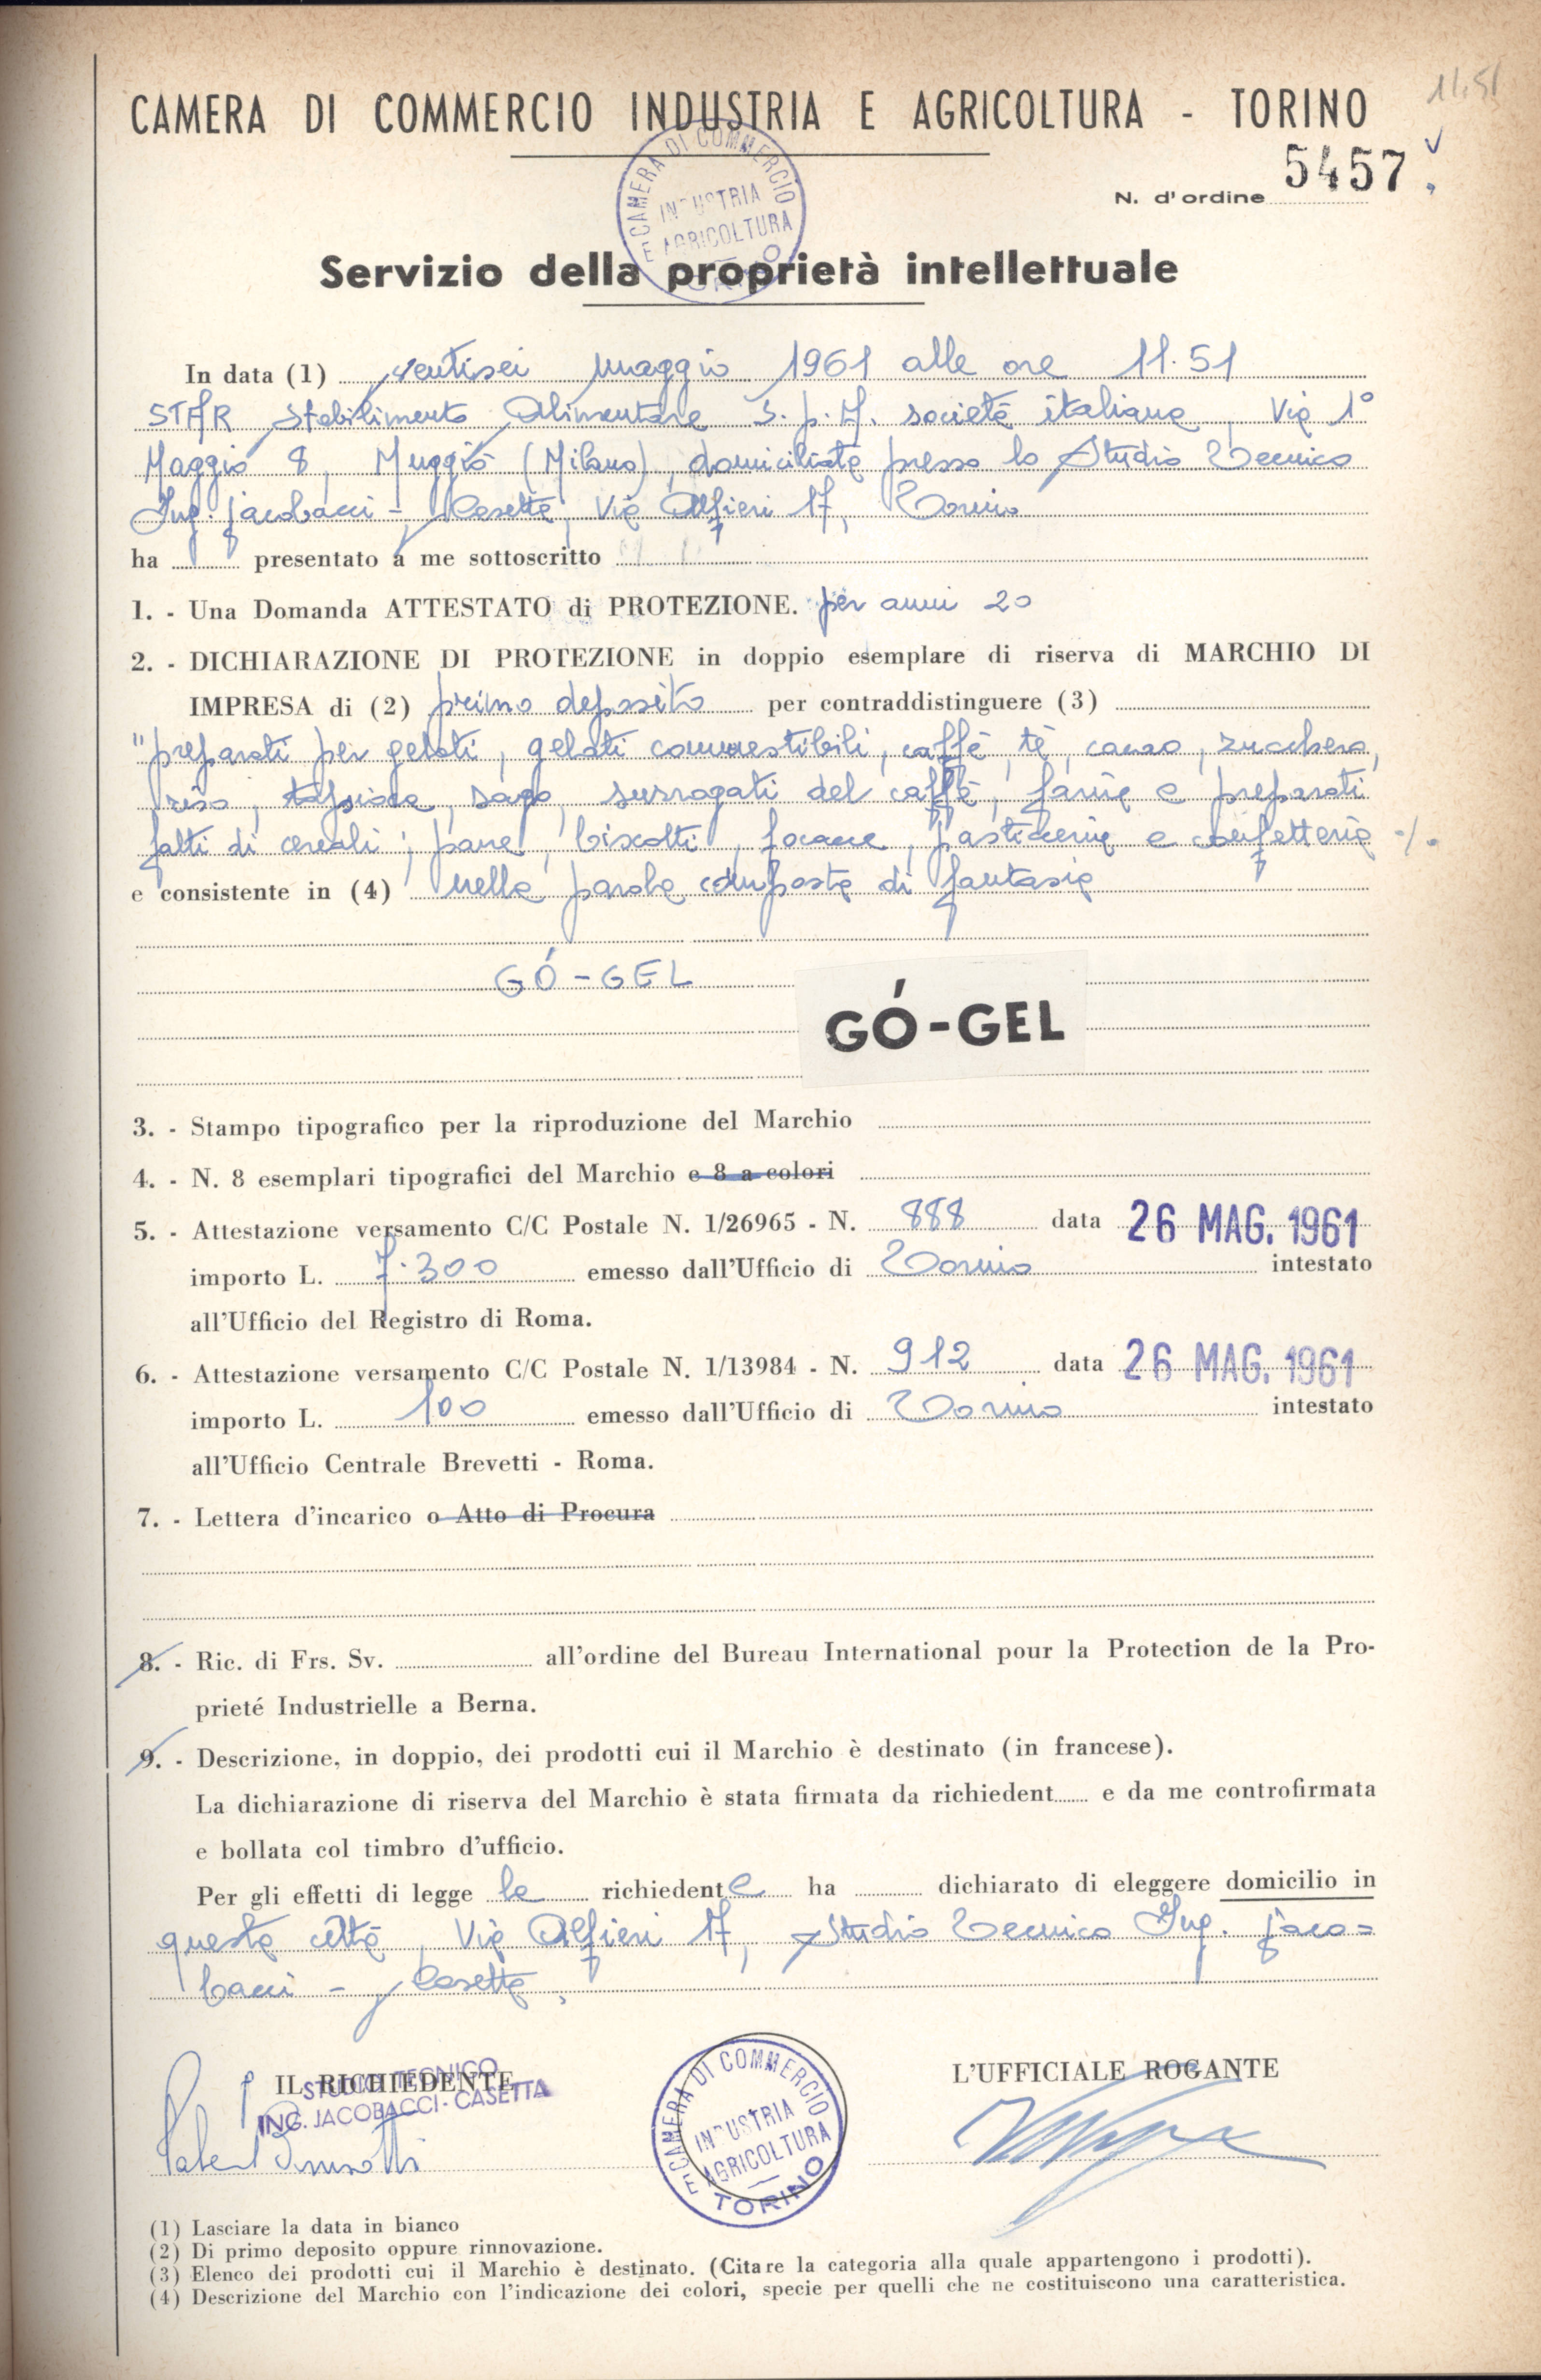 11,51
CAMERA DI COMMERCIO INDUSTRIA E AGRICOLTURA - TORINO
CAMERA DI COMMERCIO
INDUSTRIA
E AGRICOLTURA
TORINO
N. d'ordine 5457
Servizio della proprietà intellettuale
In data (1) ventisei maggio 1961 alle ore 11.51
STAR Stabilimento Alimentare S. p. A. società italiana, Via 1°
Maggio 8, Muggiò (Milano), domiciliata presso lo Studio Tecnico
Ing. Jacobacci - Casetta, Via Alfieri 17, Torino
ha presentato a me sottoscritto
1. - Una Domanda ATTESTATO di PROTEZIONE. per anni 20
2. - DICHIARAZIONE DI PROTEZIONE in doppio esemplare di riserva di MARCHIO DI
IMPRESA di (2) primo deposito per contraddistinguere (3)
"preparati per gelati, gelati commestibili, caffè, tè, cacao, zucchero,
riso, tapioca, sago, surrogati del caffè, farine e preparati
fatti di cereali; pane, biscotti, focacce, pasticceria e confetteria ./.
e consistente in (4) nella parola composta di fantasia
GÓ-GEL
GÓ-GEL
3. - Stampo tipografico per la riproduzione del Marchio
4. - N. 8 esemplari tipografici del Marchio e 8 a colori
5. - Attestazione versamento C/C Postale N. 1/26965 - N. 888 data 26 MAG. 1961
importo L. 7.300 emesso dall'Ufficio di Torino intestato
all'Ufficio del Registro di Roma.
6. - Attestazione versamento C/C Postale N. 1/13984 - N. 912 data 26 MAG. 1961
importo L. 100 emesso dall'Ufficio di Torino intestato
all'Ufficio Centrale Brevetti - Roma.
7. - Lettera d'incarico o Atto di Procura
8. - Ric. di Frs. Sv. all'ordine del Bureau International pour la Protection de la Pro-
prieté Industrielle a Berna.
9. - Descrizione, in doppio, dei prodotti cui il Marchio è destinato (in francese).
La dichiarazione di riserva del Marchio è stata firmata da richiedent e da me controfirmata
e bollata col timbro d'ufficio.
Per gli effetti di legge la richiedente ha dichiarato di eleggere domicilio in
questa città, Via Alfieri 17, Studio Tecnico Ing. Jaco=
bacci - Casetta.
IL RICHIEDENTE
STUDIO TECNICO
ING. JACOBACCI - CASETTA
CAMERA DI COMMERCIO
INDUSTRIA
E AGRICOLTURA
TORINO
L'UFFICIALE ROGANTE
(1) Lasciare la data in bianco
(2) Di primo deposito oppure rinnovazione.
(3) Elenco dei prodotti cui il Marchio è destinato. (Citare la categoria alla quale appartengono i prodotti).
(4) Descrizione del Marchio con l'indicazione dei colori, specie per quelli che ne costituiscono una caratteristica.